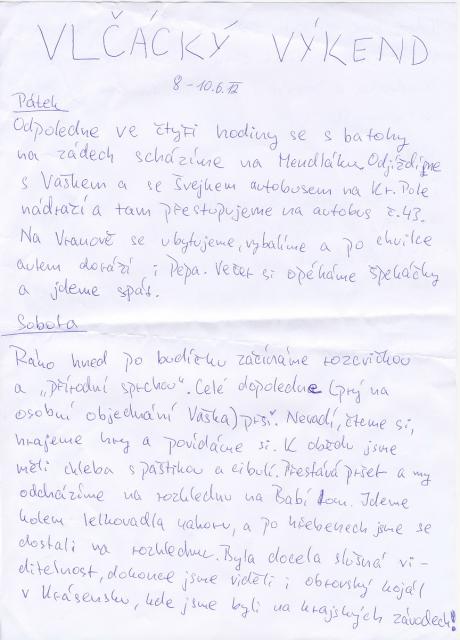 VLČÁCKÝ VÝKEND
8-10.6.12
Pátek
Odpoledne ve čtyři hodiny se s batohy
na zádech scházíme na Mendláku. Odjíždíme
s Vaškem a se Švejkem autobusem na Kr. Pole
nádraží a tam přestupujeme na autobus č.43.
Na Vranově se ubytujeme, vybalíme a po chvilce
autem dorazí i Pepa. Večer si opékáme špekáčky
a jdeme spát.
Sobota
Ráno hned po budíčku začínáme rozcvičkou
a „přírodní sprchou". Celé dopoledne (prý na
osobní objednání Vaška) prší. Nevadí, čteme si,
hrajeme hry a povídáme si. K obědu jsme
měli chleba s paštikou a cibulí. Přestává pršet a my
odcházíme na rozhlednu na Babí lom. Jdeme
kolem lelkovadla nahoru, a po hřebenech jsme se
dostali na rozhlednu. Byla docela slušná vi-
ditelnost, dokonce jsme viděli i obrovský kojál
v Krásensku, kde jsme byli na krajských závodech!